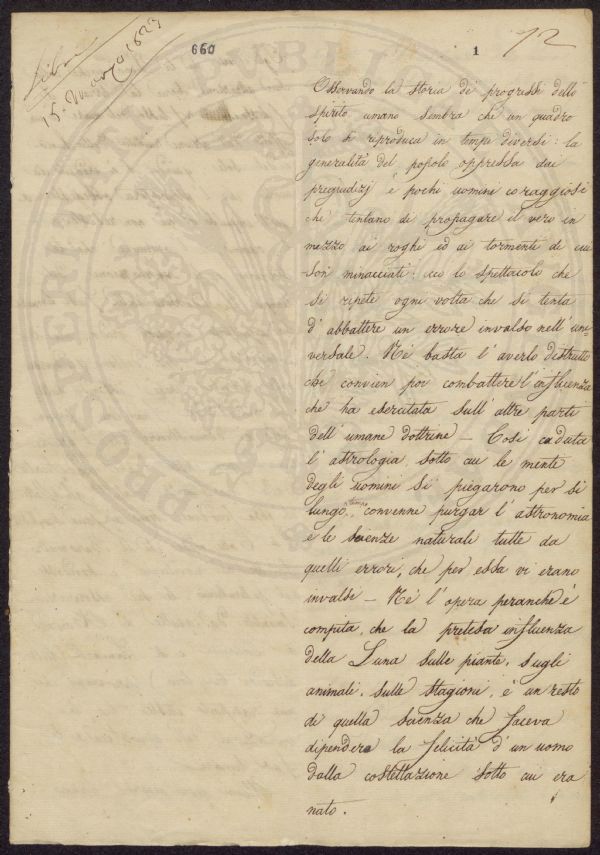 Libri
15. Marzo 1823
660
1
72
Osservando la storia de' progressi dello
spirito umano sembra che un quadro
solo si riproduca in tempi diversi: la
generalità del popolo oppressa dai
pregiudizj e pochi uomini coraggiosi
che tentano di propagare il vero in
mezzo ai roghi ed ai tormenti di cui
son minacciati: ecco lo spettacolo che
si ripete ogni volta che si tenta
d'abbattere un errore invalso nell'uni=
versale. Né basta l'averlo distrutto
che convien poi combattere l'influenza
che ha esercitata sull'altre parti
dell'umane dottrine — Così caduta
l'astrologia, sotto cui le menti
degli uomini si piegarono per sì
lungo tempo, convenne purgar l'astronomia
e le scienze naturali tutte da
quelli errori, che per essa vi erano
invalsi — Né l'opera peranche è
compita, che la pretesa influenza
della Luna sulle piante, sugli
animali, sulle stagioni, è un resto
di quella scienza che faceva
dipendere la felicità d'un uomo
dalla costellazione sotto cui era
nato.